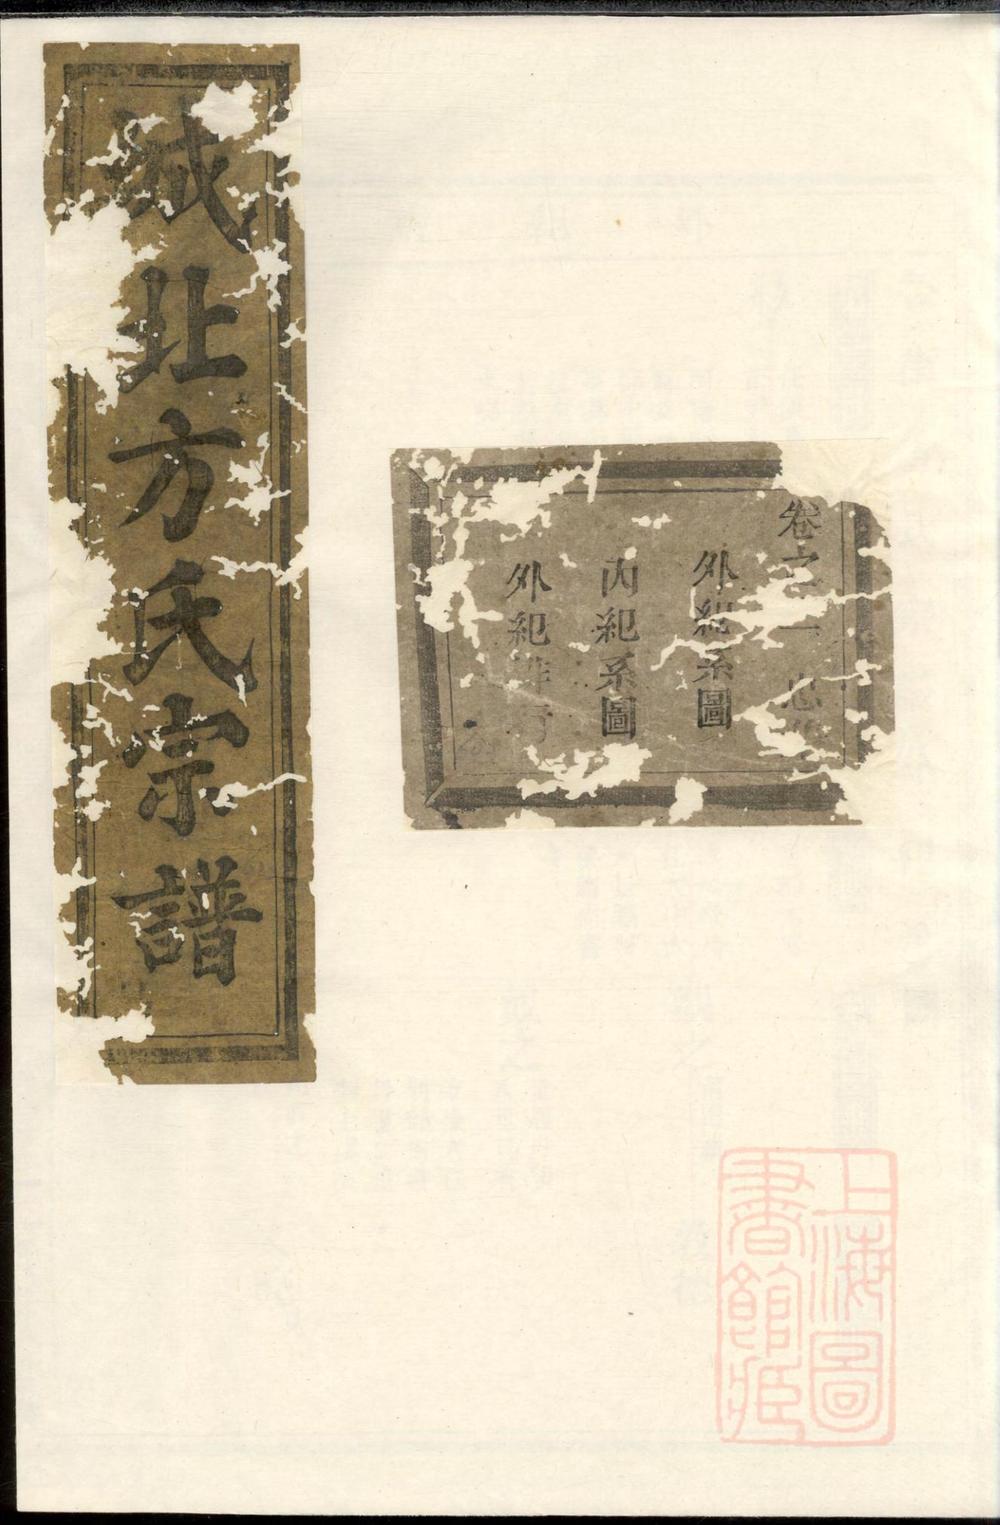 城北方氏宗譜
卷之一 忠
外紀系圖
內紀系圖
外紀
上海圖
書館藏